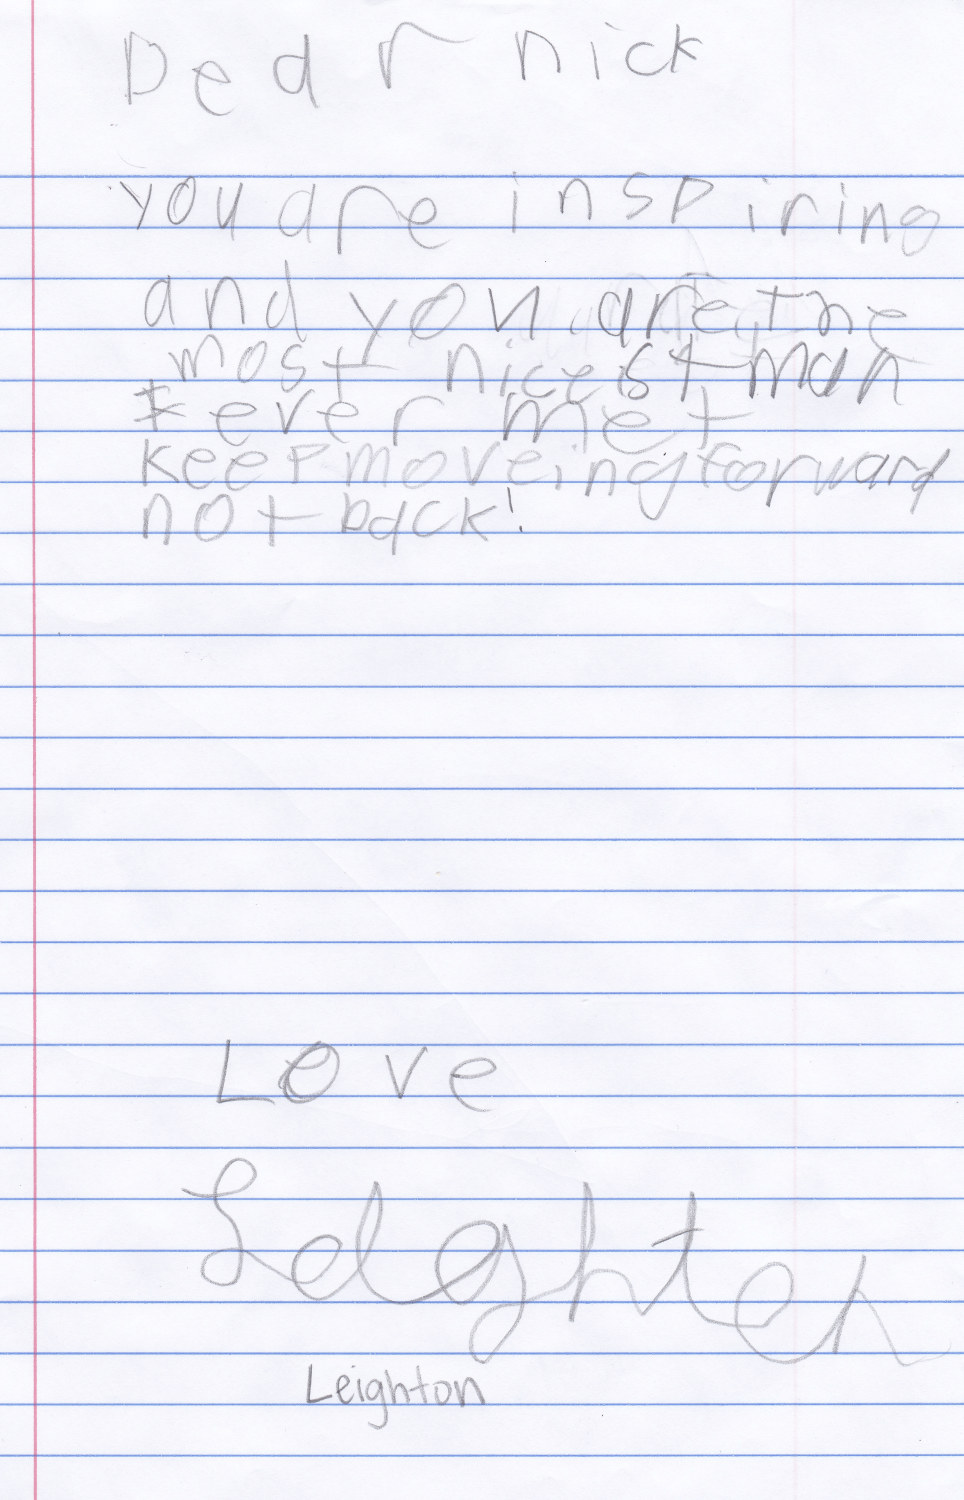 Dear nick
you are inspiring
and you are the
most nicest man
I ever met
keep moveing forward
not back!
Love
Leighton
Leighton